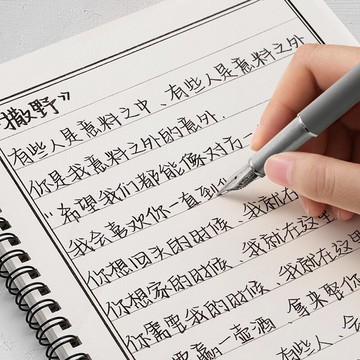 撒野》
有些人是意料之中、有些人是意料之外
你是我意料之外的意外.
"希望我们都能像对方一
我会喜欢你一直到
你想回头的时候、我就在这
你想家的时候、我就在这里
你需要我的时候、我就在这里
一壶酒、拿来
有些人